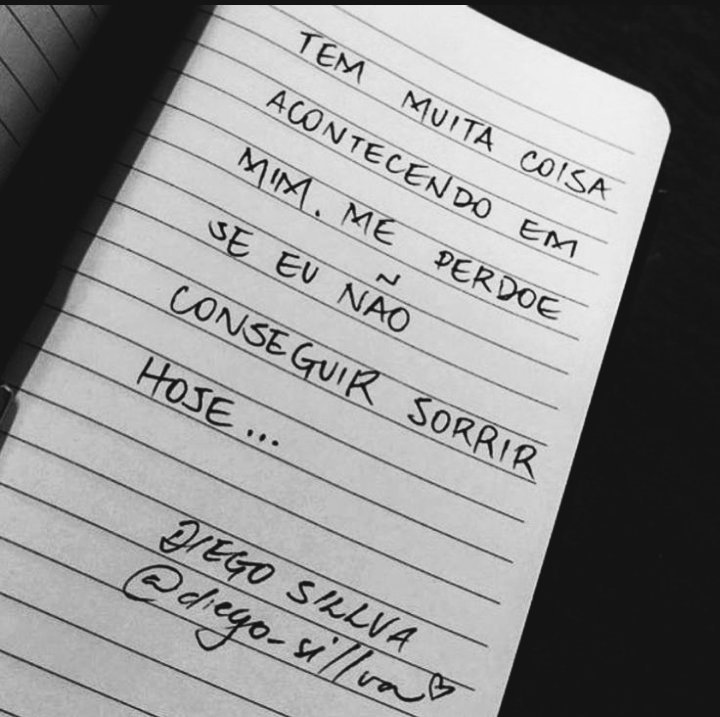 TEM MUITA COISA
ACONTECENDO EM
MIM. ME PERDOE
SE EU NÃO
CONSEGUIR SORRIR
HOJE...
DIEGO SILLVA
@diego_sillva♡